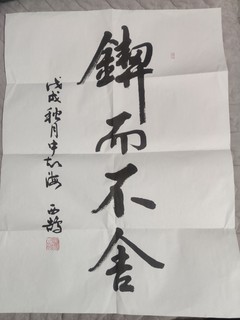 鍥而不舍
戊戌秋月中海
西